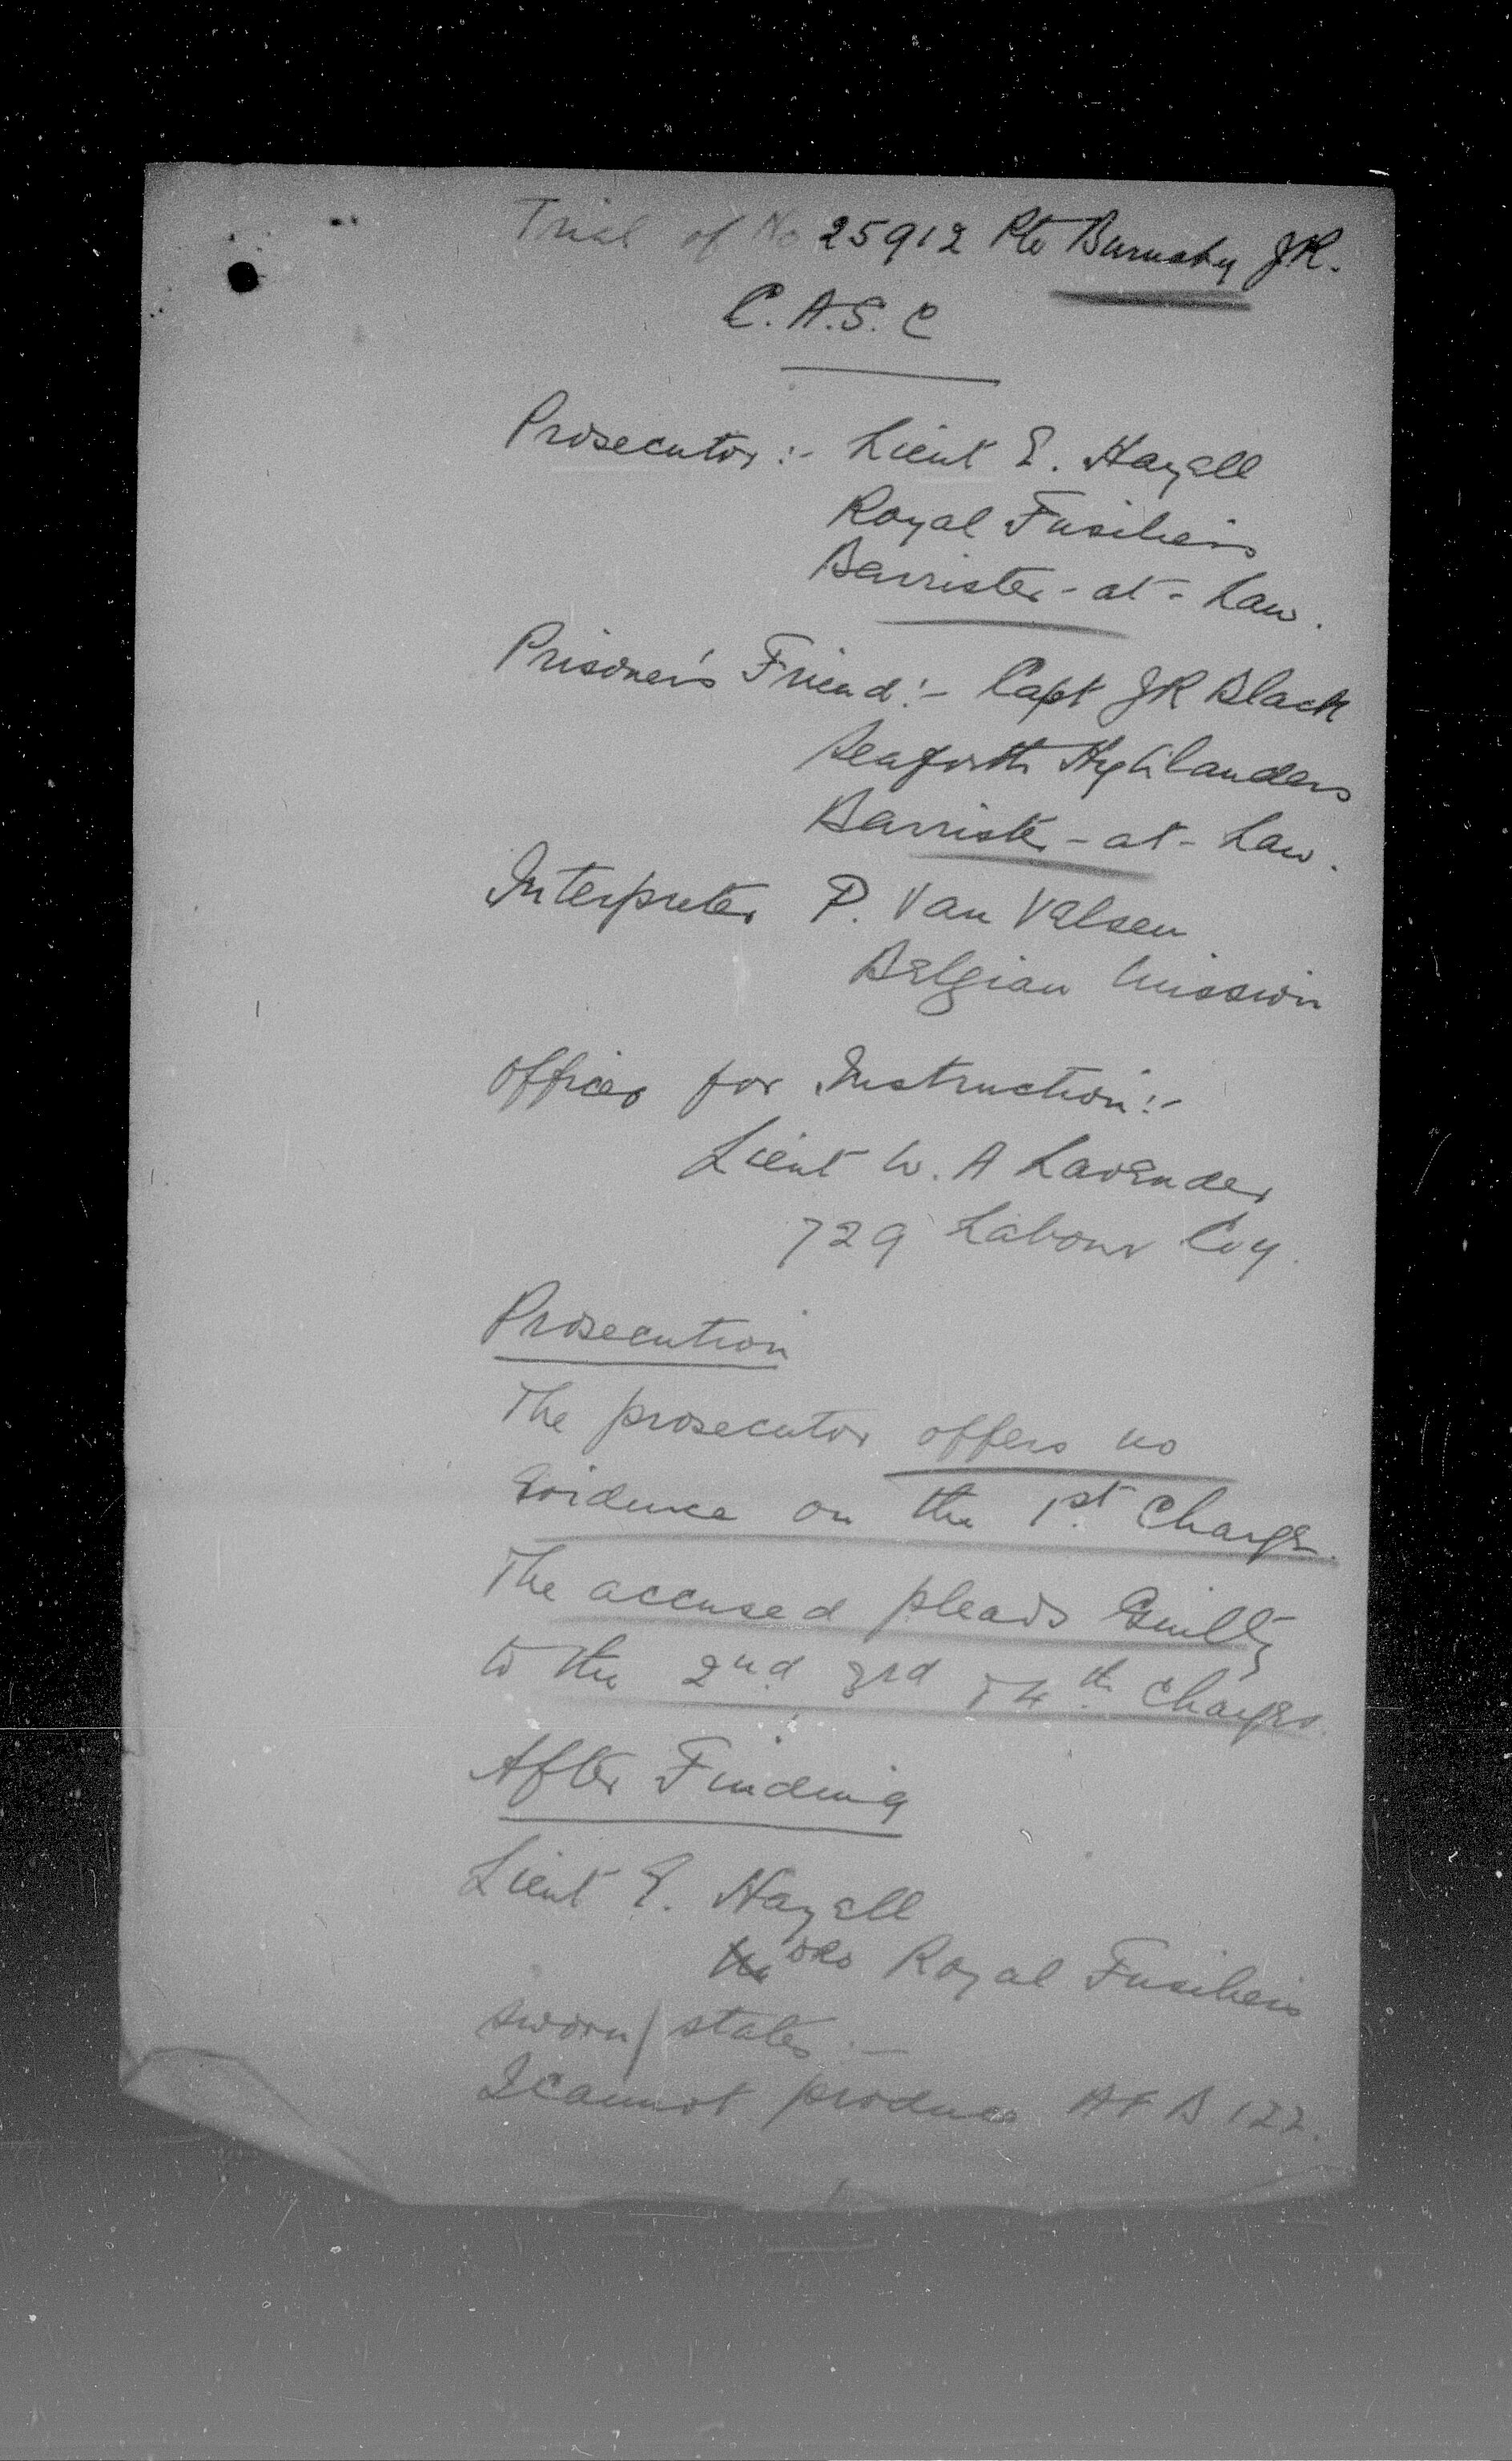 Trial of No 25912 Pte Burnaby JR.
C.A.S.C
Prosecutor :- Lieut E. Hazell
Royal Fusiliers
Barrister-at-Law.
Prisoner's Friend :- Capt JR Black
Seaforth Highlanders
Barrister-at-Law.
Interpreter P. Van Valsen
Belgian Mission
Officer for Instruction :-
Lieut W. A Lavender
729 Labour Coy.
Prosecution
The prosecutor offers no
Evidence on the 1st Charge.
The accused pleads Guilty
to the 2nd 3rd & 4th Charges.
After Finding
Lieut E. Hazell
Royal Fusiliers
sworn/ states :-
I cannot produce AF B 122.